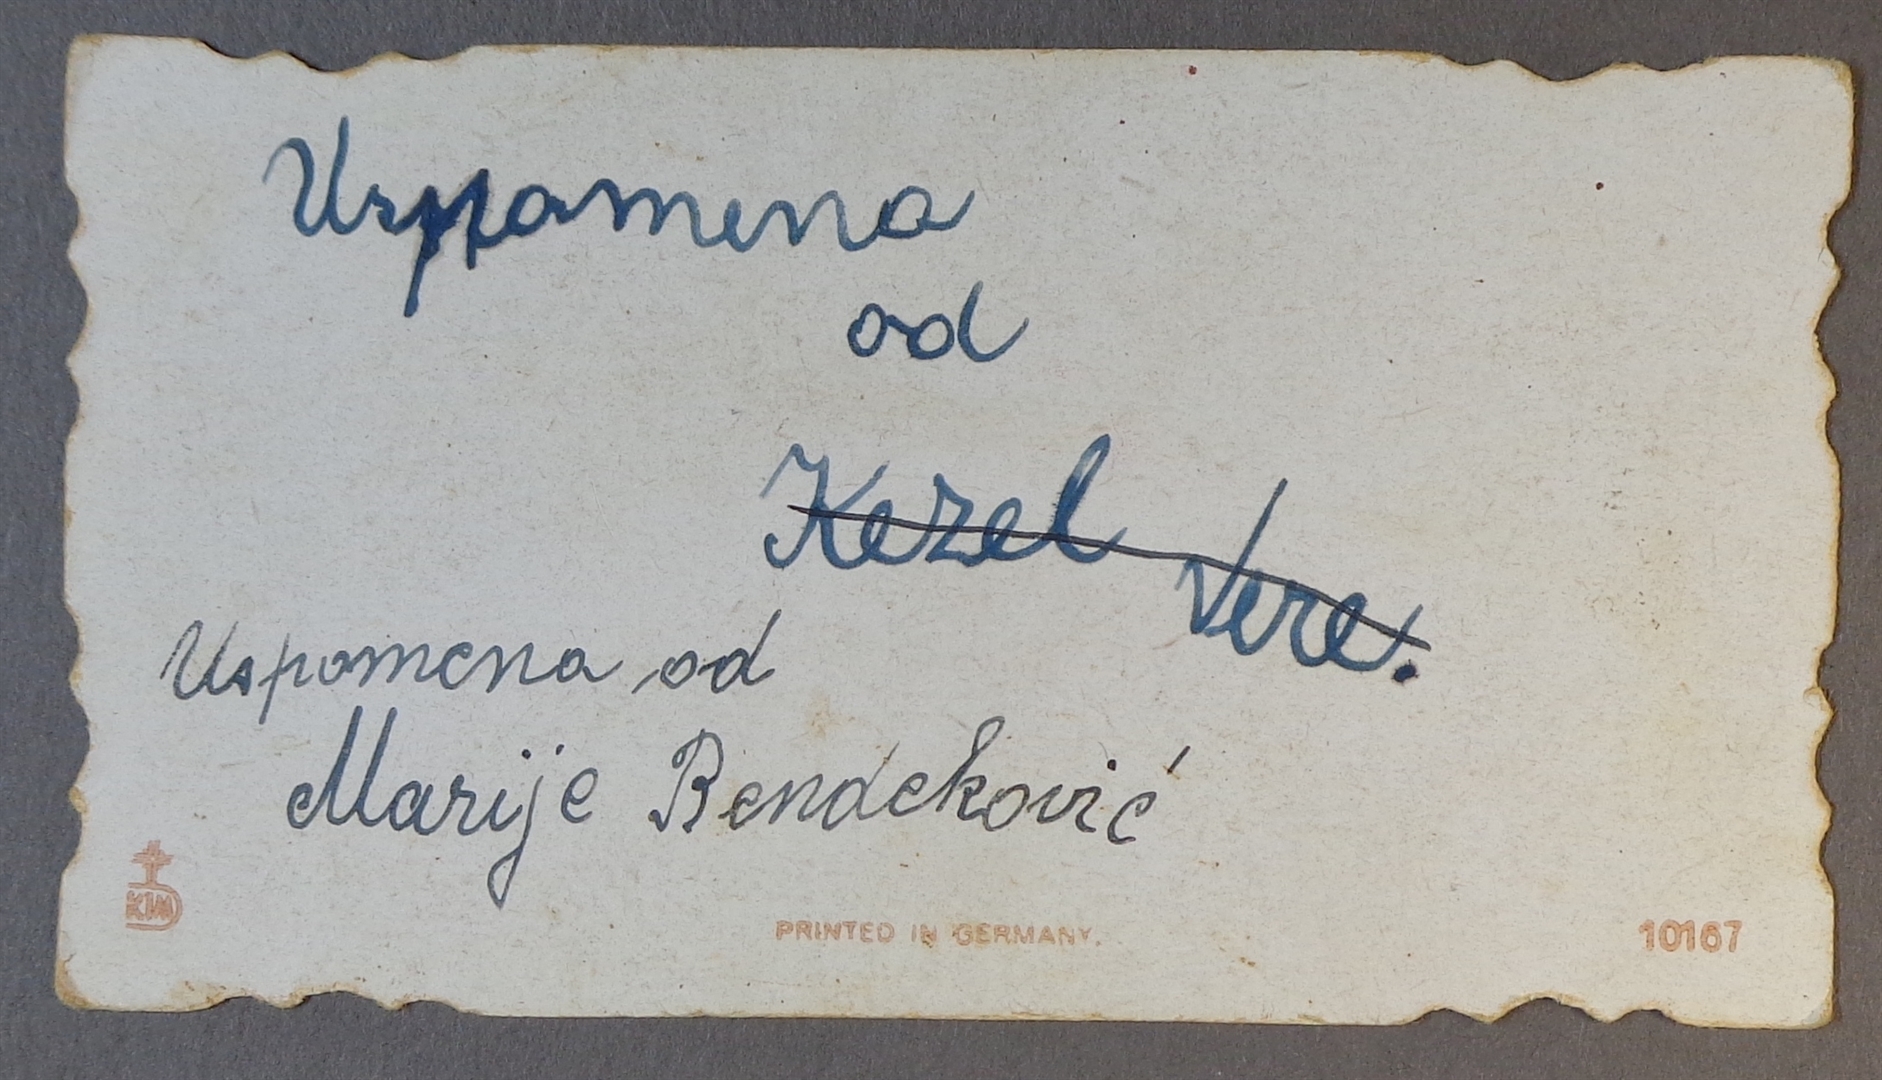 Uspomena
od
Kezel Vere.
Uspomena od
Marije Bendeković
KIM
PRINTED IN GERMANY.
10167